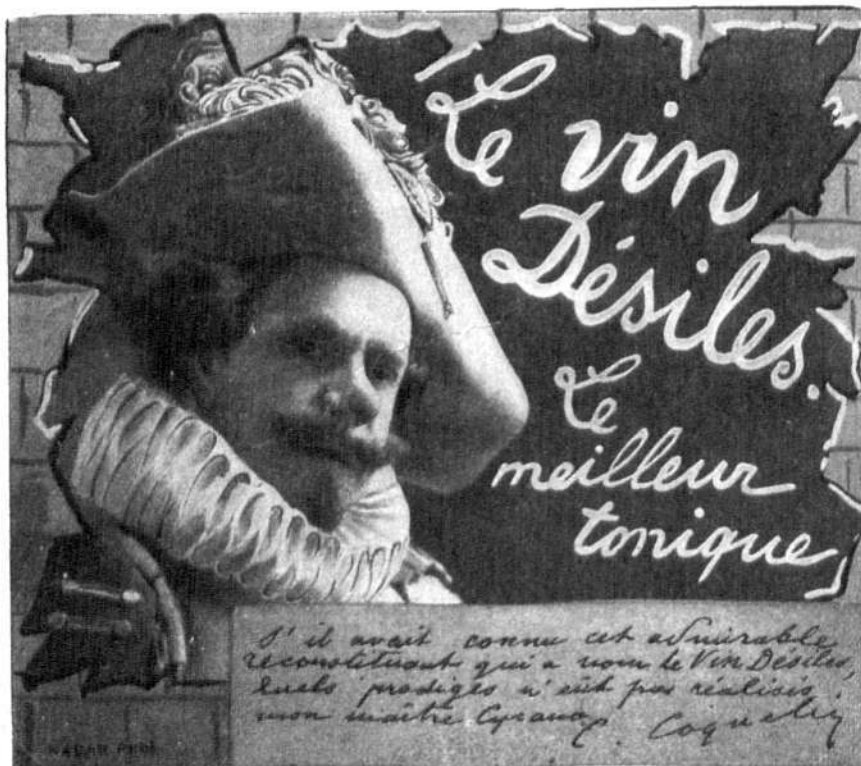 Le vin
Désiles.
Le
meilleur
tonique
S'il avait connu cet admirable
reconstituant qui a nom le Vin Désiles,
quels prodiges n'eût pas réalisés
mon maître Cyrano
C. Coquelin
NADAR PHOT